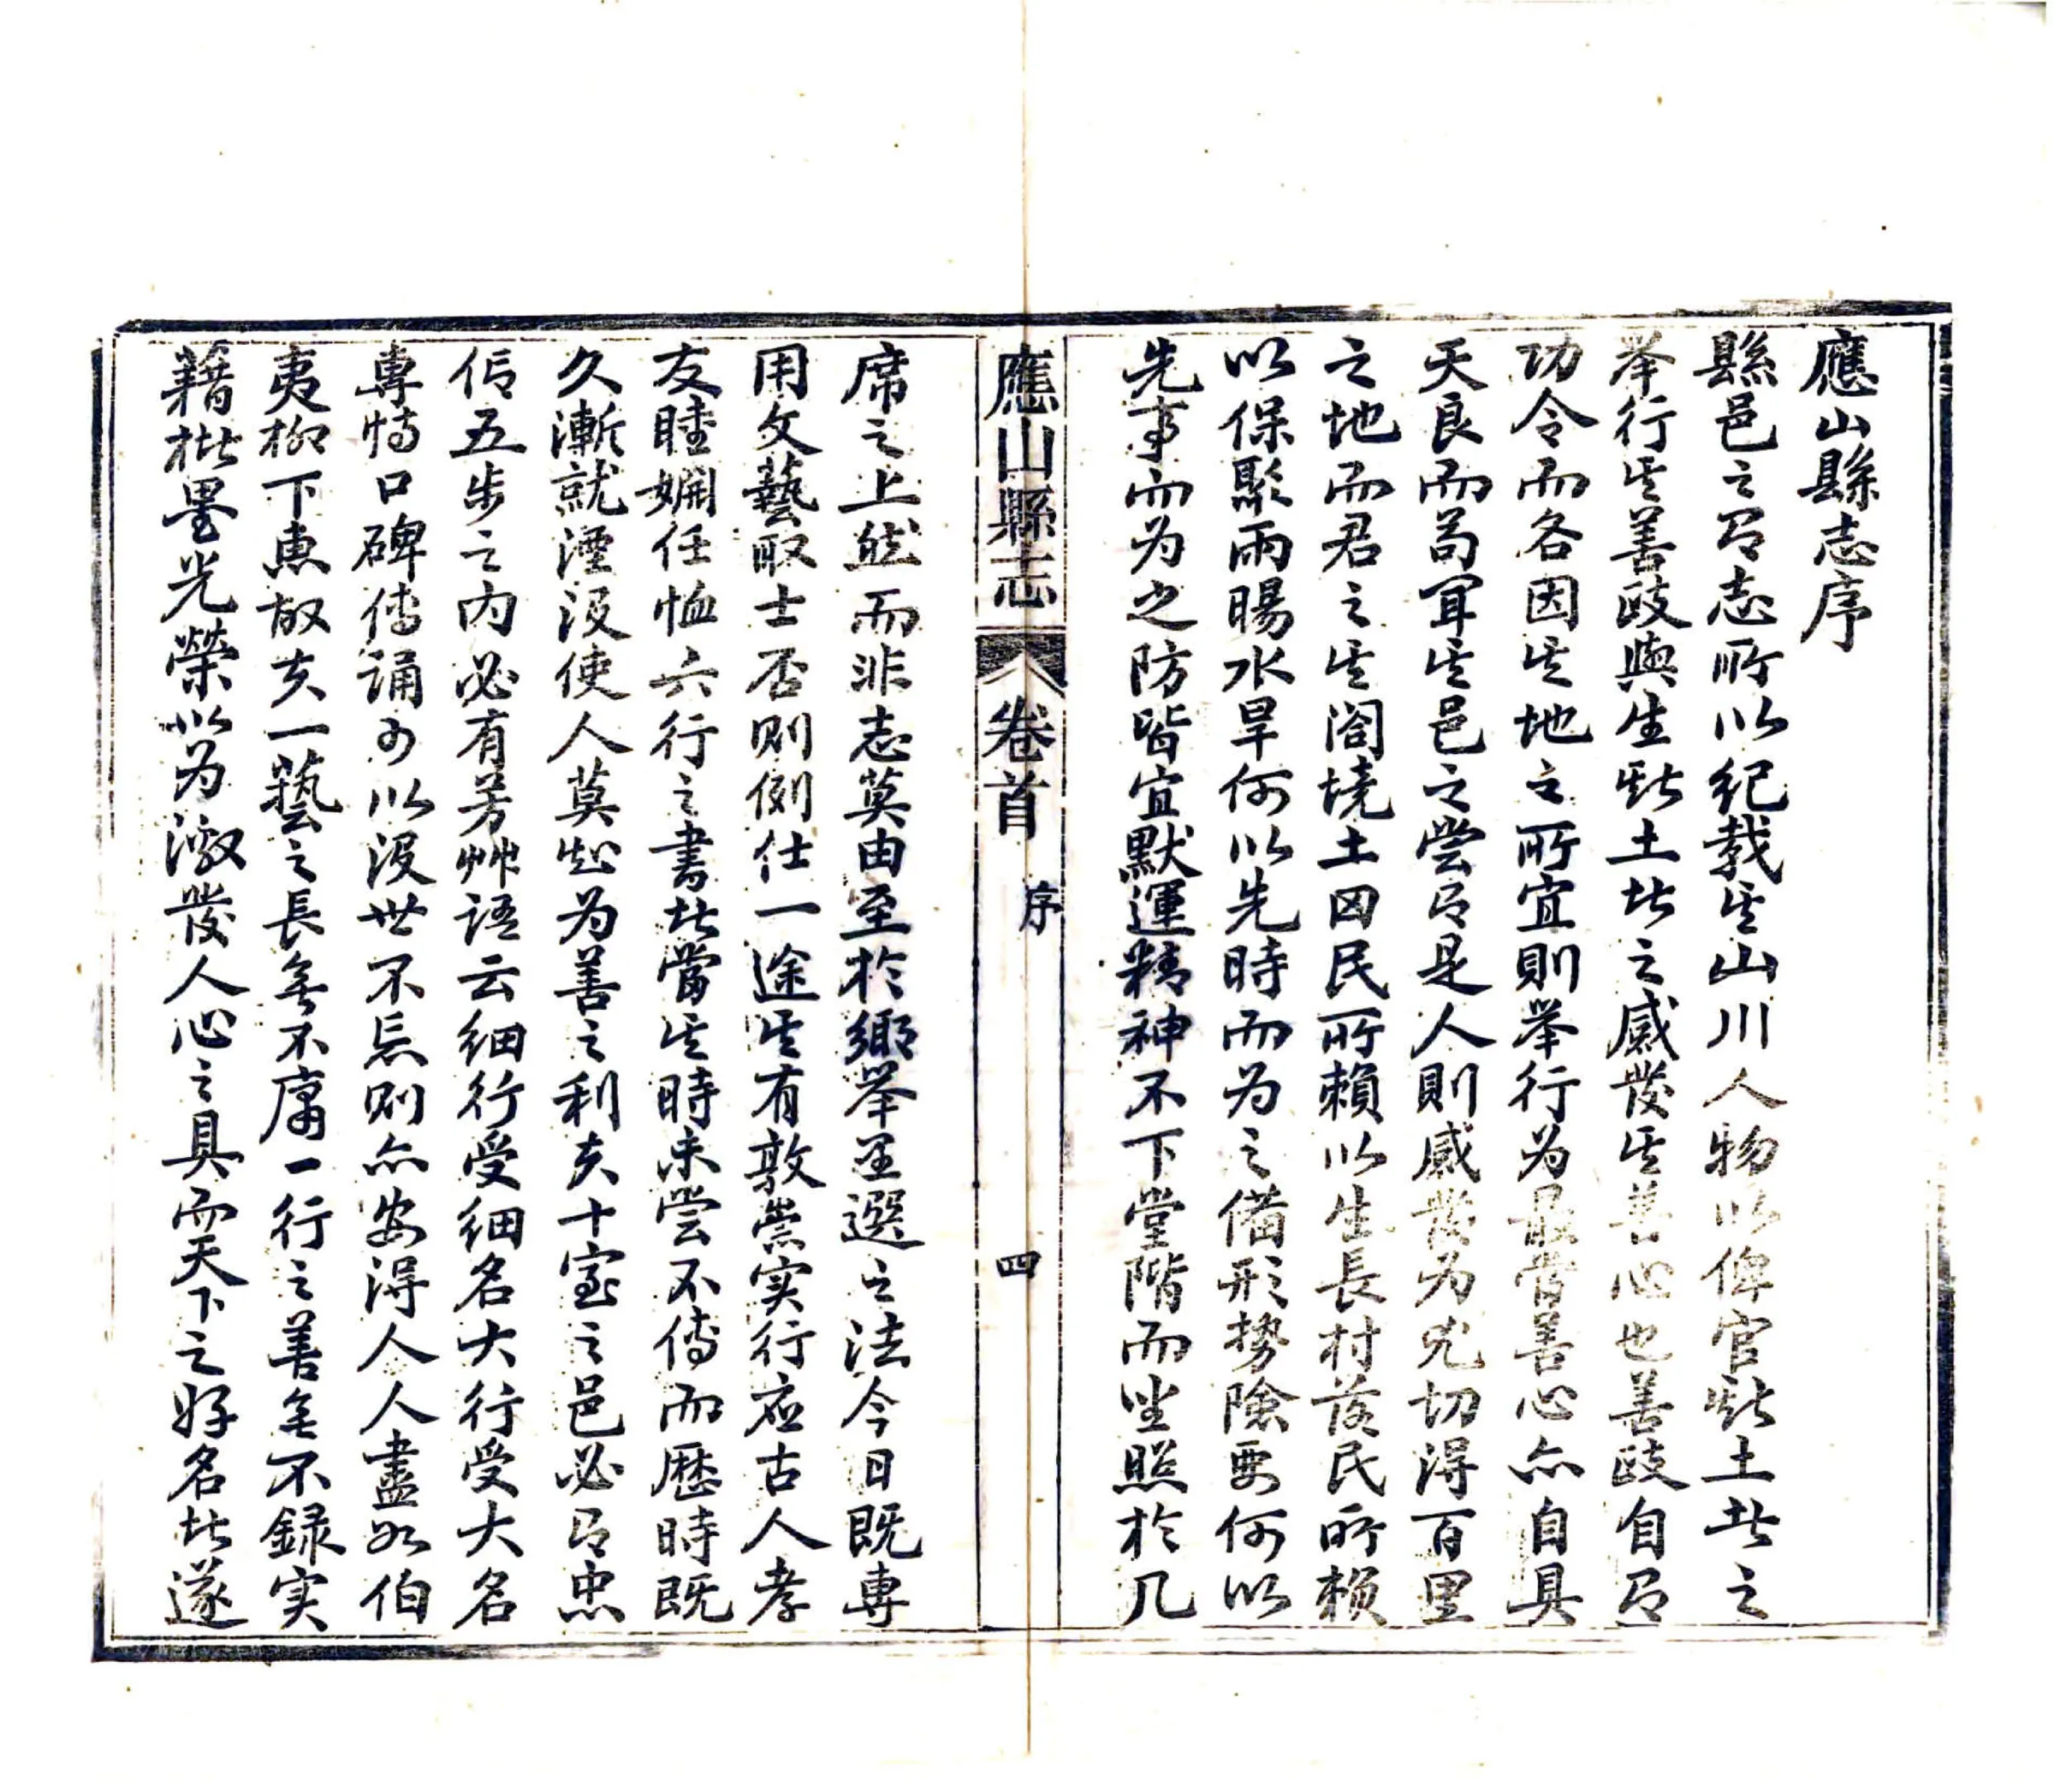 應山縣志序
縣邑之有志所以紀載其山川人物以俾官斯土者之
举行其善政與生斯土者之感發其善心也善政自有
功令而各因其地之所宜則举行为最昔善心亦自具
天良而苟聞其邑之嘗有是人則感發为尤切得百里
之地而君之其闔境土田民所賴以生長村落民所賴
以保聚雨暘水旱何以先時而为之備形势險要何以
先事而为之防皆宜默運精神不下堂階而坐照於几
應山縣志 卷首 序 四
席之上然而非志莫由至於鄉举里選之法今日既専
用文藝取士否则例仕一途其有敦崇实行应古人孝
友睦婣任恤六行之書者當其時未嘗不传而歷時既
久漸就湮没使人莫知为善之利夫十室之邑必有忠
信五步之内必有芳艸語云细行受细名大行受大名
専恃口碑传诵可以没世不忘则亦安得人人盡如伯
夷柳下惠故夫一藝之長無不庸一行之善無不録实
藉楮墨光榮以为激發人心之具而天下之好名者遂